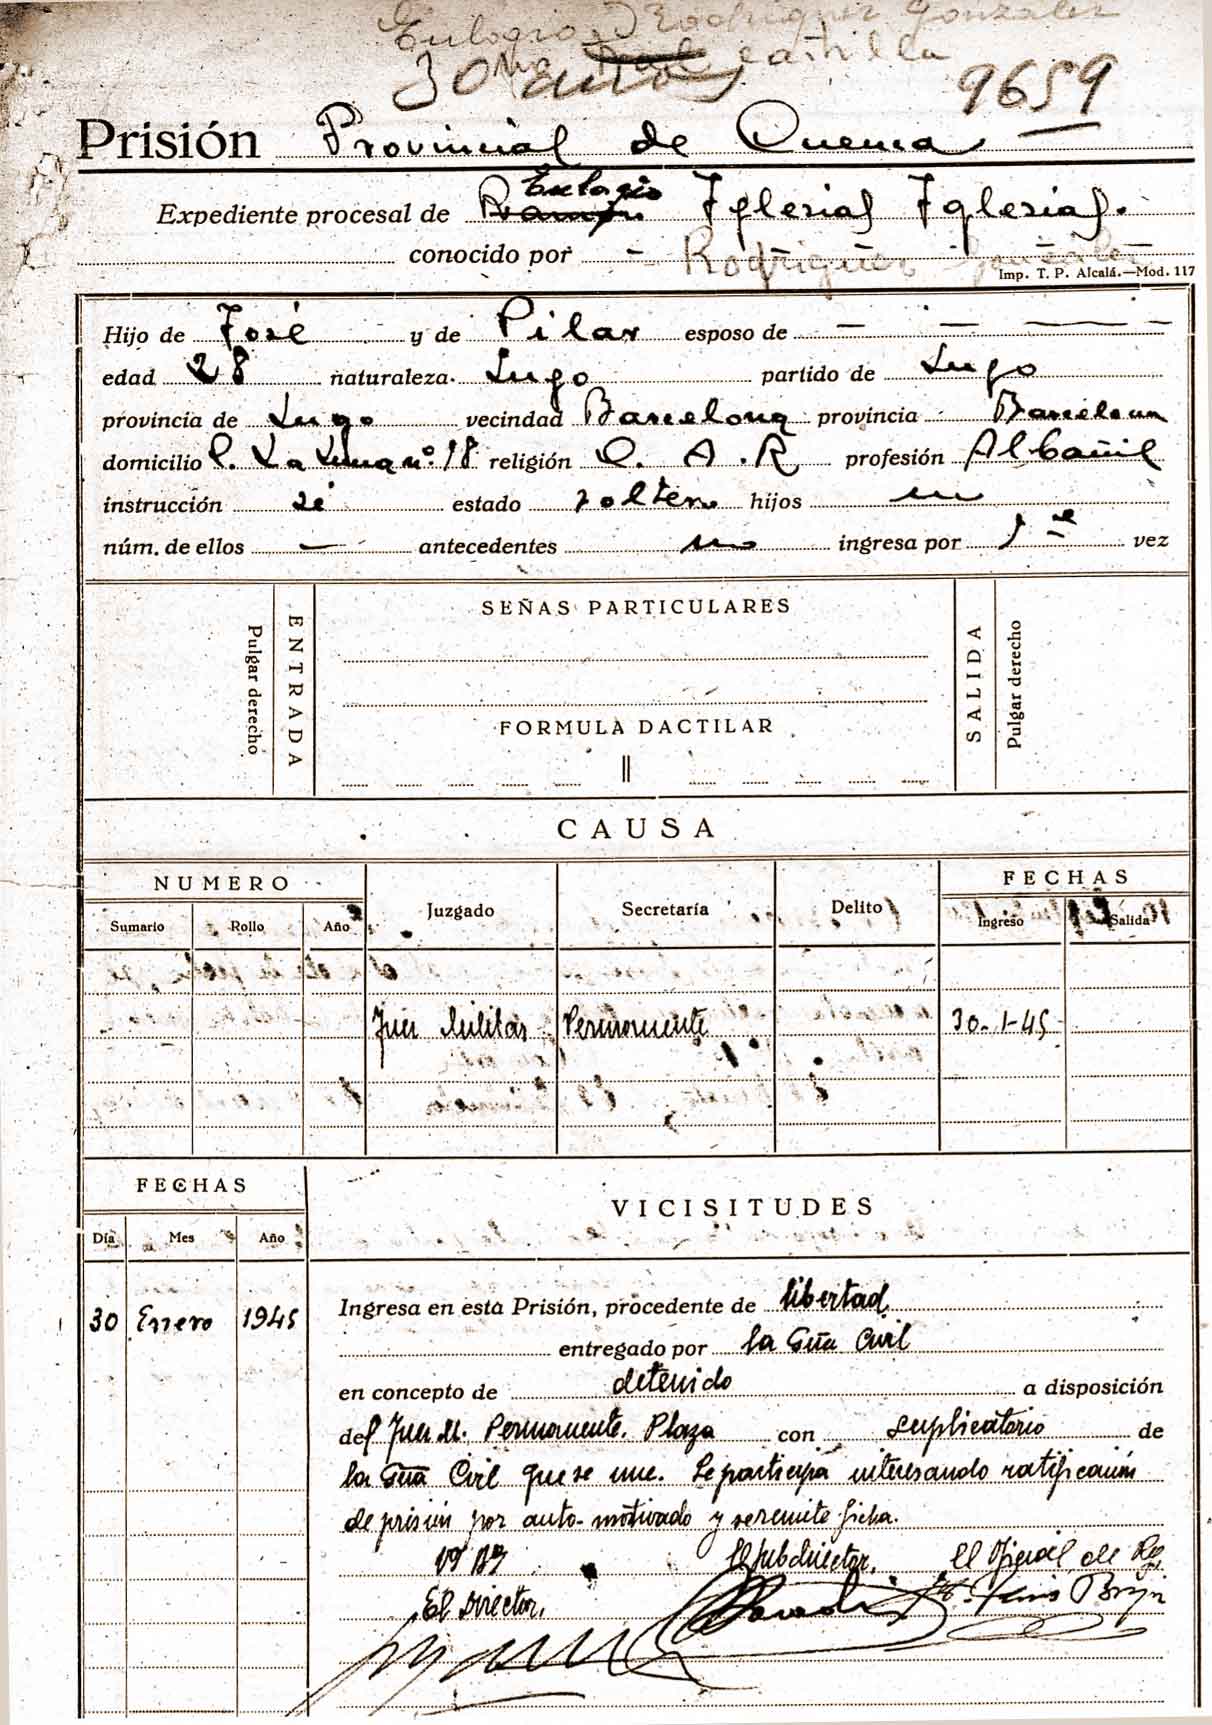 Eulogio Rodriguez Gonzalez
30 años Castilla
9659
Prisión Provincial de Cuenca
Eulogio
Expediente procesal de Ramón Iglesias Iglesias.
conocido por - Rodriguez González
Imp. T. P. Alcalá.—Mod. 117
Hijo de José y de Pilar esposo de — — —
edad 28 naturaleza Lugo partido de Lugo
provincia de Lugo vecindad Barcelona provincia Barcelona
domicilio C. La Luna nº 18 religión C. A. R profesión Albañil
instrucción si estado soltero hijos no
núm. de ellos — antecedentes no ingresa por 1ª vez
SEÑAS PARTICULARES
ENTRADA
Pulgar derecho
SALIDA
Pulgar derecho
FORMULA DACTILAR
CAUSA
NUMERO Juzgado Secretaría Delito FECHAS
Sumario Rollo Año Ingreso Salida
Juez Militar Permanente 30-1-45
FECHAS VICISITUDES
Día Mes Año
30 Enero 1945 Ingresa en esta Prisión, procedente de libertad
entregado por la Gua Civil
en concepto de detenido a disposición
del Juez M. Permanente. Plaza con suplicatorio de
la Gua Civil que se une. Se participa interesando ratificación
de prisión por auto-motivado y se remite ficha.
Vº Bº El Subdirector, El Oficial de
El Director,